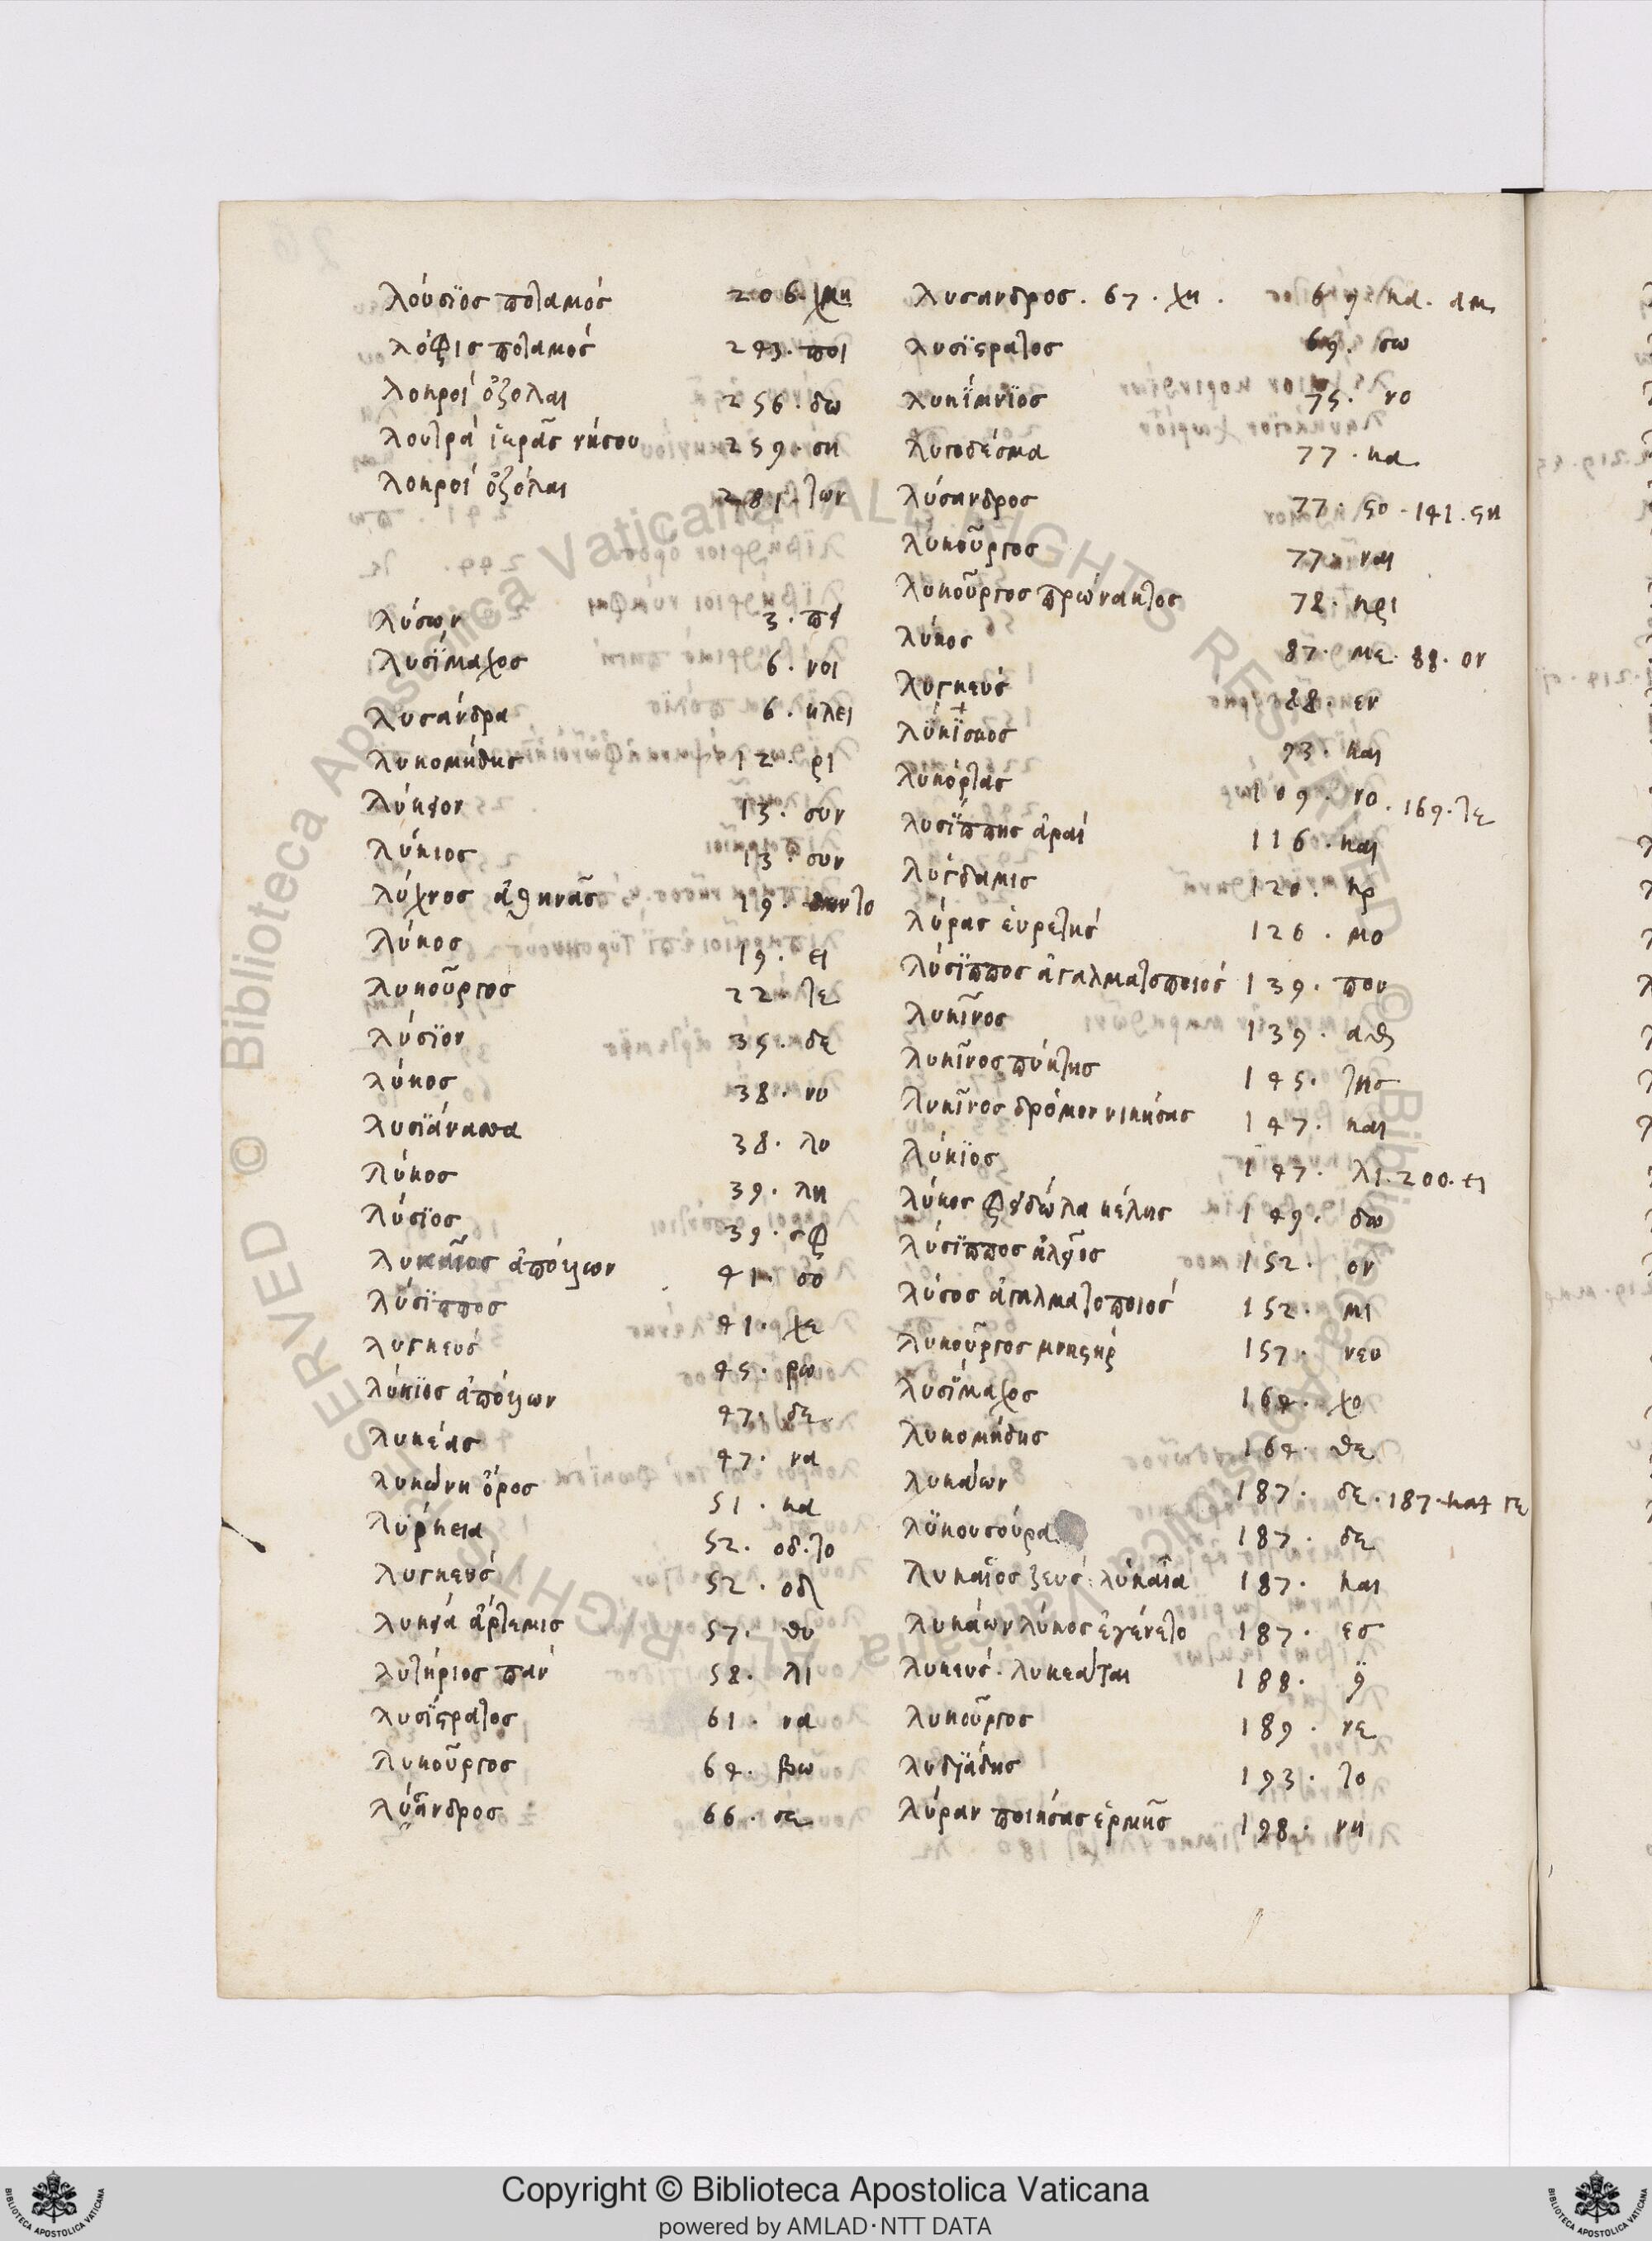 λούσϊος ποταμός 206. χμη
λόφις ποταμός 293. ποι
λοκροί ὀζόλαι 256. δω
λουτρά ἱερᾶς νήσου 259. ση
λοκροί ὀζόλαι 281. των
λύσων 3. πά
λυσίμαχος 6. νοι
λυσάνδρα 6. κλει
λυκομήδης 12. ρι
λύκιον 13. συν
λύκιος 13. συν
λύχνος ἀθηνᾶς 19.
λύκος 19. ει
λυκοῦργος 22. τε
λύσϊον 35. δε
λύκος 38. νυ
λυσϊάνασσα 38. λυ
λύκος 39. λη
λύσϊος 39. σφ
λυκαῖος ἀπόλλων 41. σο
λύσϊππος 41. χε
λυγκεύς 45. ρω
λύκϊος ἀπόλλων 47. δε
λυκέας 47. να
λυκώνη ὄρος 51. κα
λύρκεια 52. οδ. το
λυγκεύς 52. οδ
λυκεία ἄρτεμις 57. θυ
λυτήριος πάν 58. λι
λυσίστρατος 61. να
λυκοῦργος 64. βω
λύσανδρος 66. σε
λυσανδρος. 67. χη. 69 κα. αμ
λυσίστρατος 69. σω
λυκίμνϊος 75. νο
λυγοδέσμα 77. κα
λύσανδρος 77. στο. 141. στη
λυκοῦργος 77. ναι
λυκοῦργος πρώνακτος 78. κρι
λύκος 87. με. 88. ον
λυγκεύς 88. εν
λυκίσκος 93. και
λυκόρτας 109. νο. 169. τε
λυσίππης ἀραί 116. και
λύγδαμις 120. κρ
λύρας εὑρετής 126. μο
λύσϊππος ἀγαλματοποιός 139. που
λυκῖνος 139. αθ
λυκῖνος πύκτης 145. της
λυκῖνος δρόμον νικήσας 147. και
λύκϊος 147. λι. 200. ει
λύκος φειδώλα κέλης 149. δω
λύσϊππος ἀλεῖος 152. ον
λύσος ἀγαλματοποιός 152. μι
λυκοῦργος μνηστήρ 157. νευ
λυσίμαχος 164. χο
λυκομήδης 164. θε
λυκάων 187. δε. 187. κατ γε
λϋκουσούρα. 187. δε
λυκαῖος ζευς. λύκαια 187. και
λυκάων λύκος ἐγένετο 187. εσ
λυκευς. λυκεᾶται 188. ϋ
λυκοῦργος 189. νε
λυδϊάδης 193. το
λύραν ποιήσας ἑρμῆς 198. νη
Copyright © Biblioteca Apostolica Vaticana
powered by AMLAD·NTT DATA